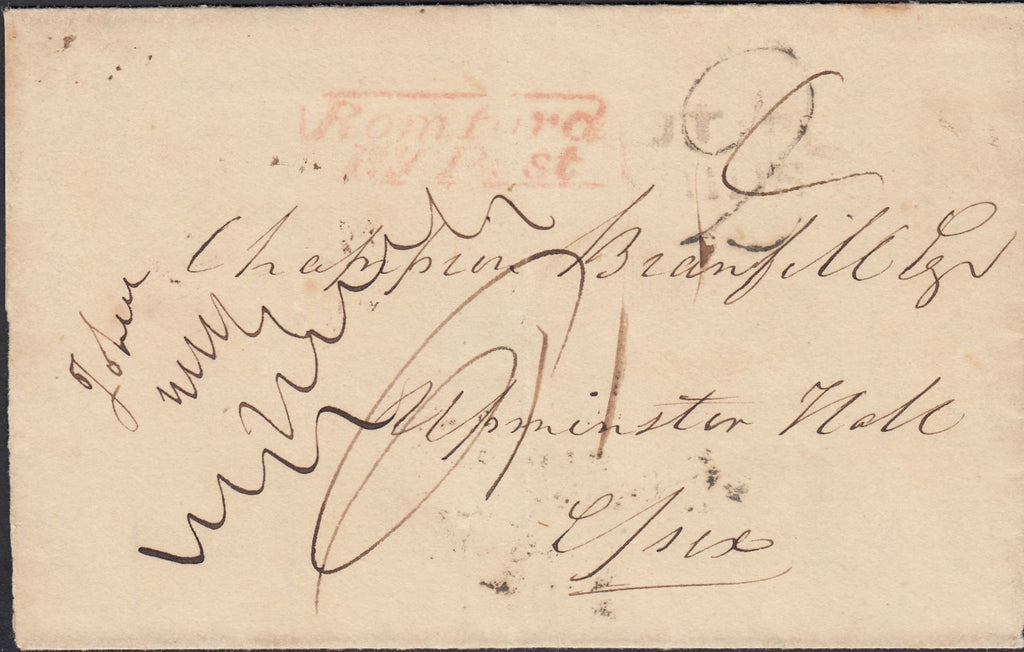 Romford
Py Post
Champion Branfill Esqr
Upminster Hall
Essex